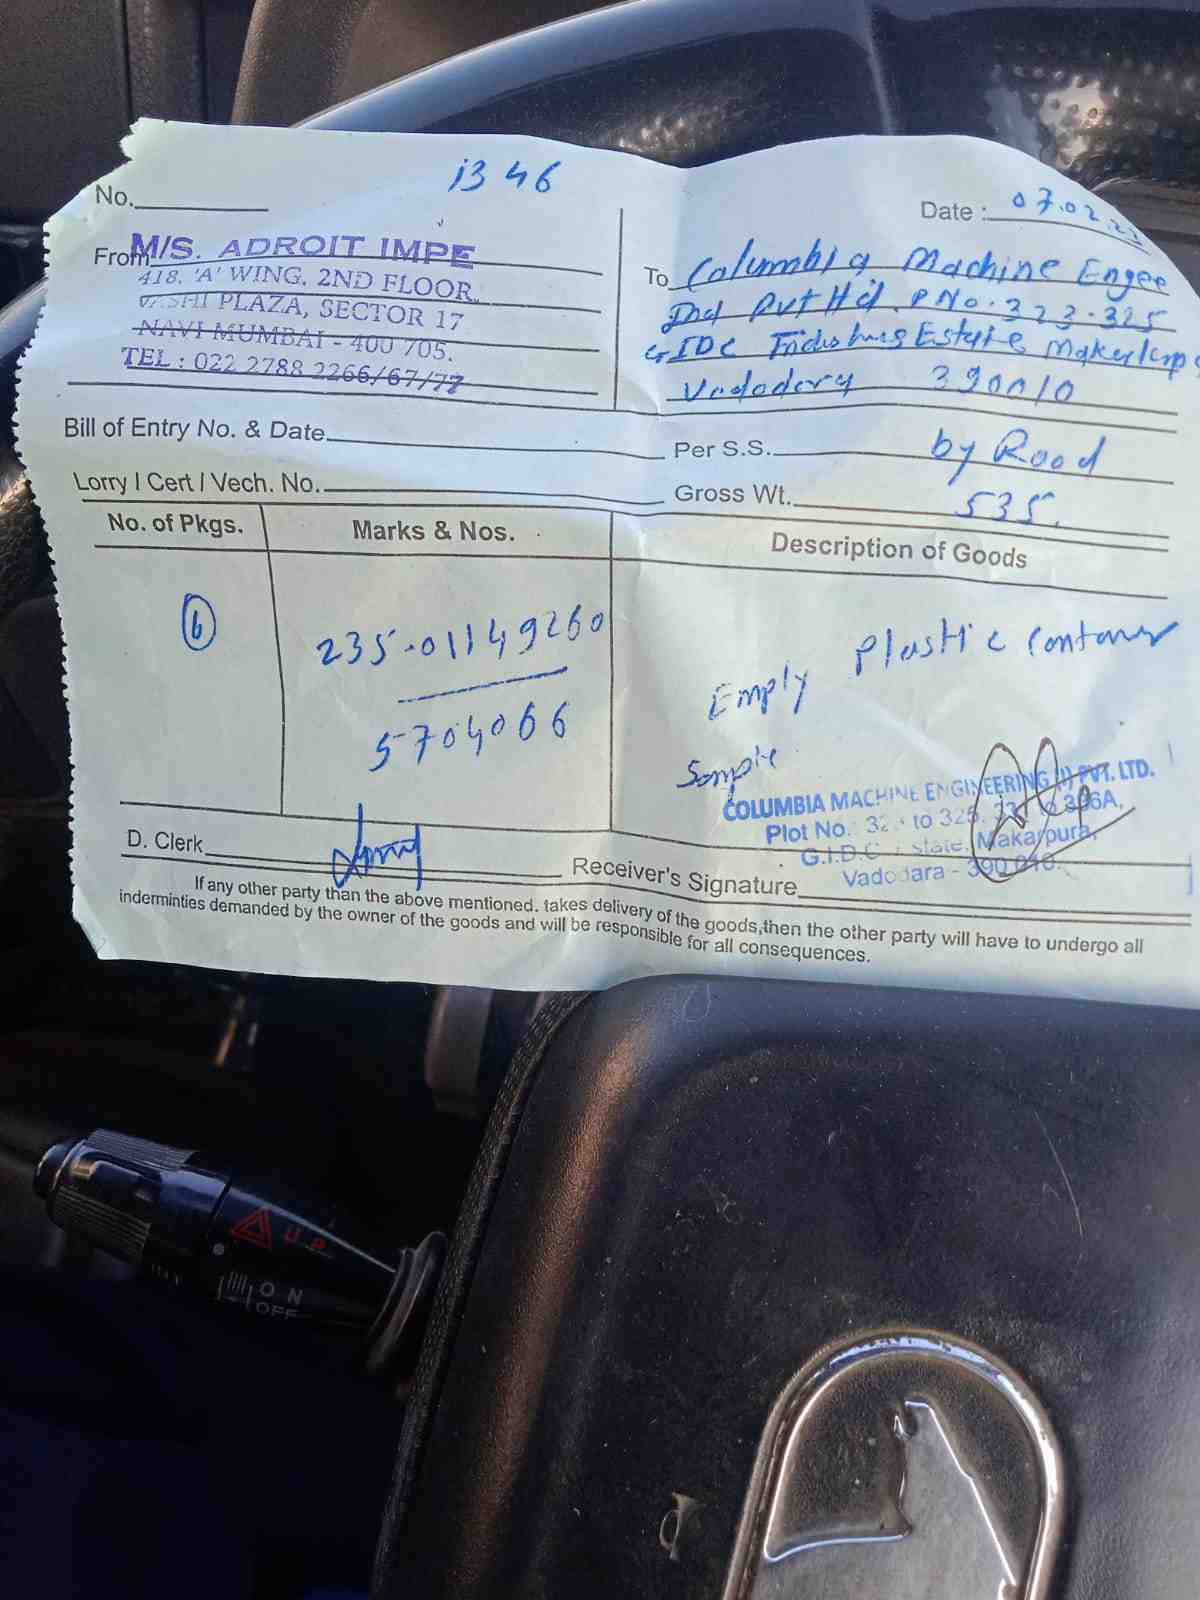 No. 1346
Date : 07.02.
From M/S. ADROIT IMPE
418. 'A' WING. 2ND FLOOR,
VASHI PLAZA, SECTOR 17
NAVI MUMBAI - 400 705.
TEL : 022 2788 2266/67/77
To Columbia Machine Engee
Ind Pvt Ltd. PNo. 323.325
GIDC Estate Makarpura
Vadodara 390010
Bill of Entry No. & Date
Per S.S. by Road
Lorry / Cert / Vech. No.
Gross Wt. 535.
No. of Pkgs.
Marks & Nos.
Description of Goods
6
235-01149260
5704066
Empty Plastic Container
Sample
COLUMBIA MACHINE ENGINEERING (I) PVT. LTD.
Plot No. to 326, 396A,
G.I.D.C Estate, Makarpura,
Vadodara - 390 010.
D. Clerk
Receiver's Signature
If any other party than the above mentioned. takes delivery of the goods,then the other party will have to undergo all
inderminties demanded by the owner of the goods and will be responsible for all consequences.
U.P.
ON
OFF